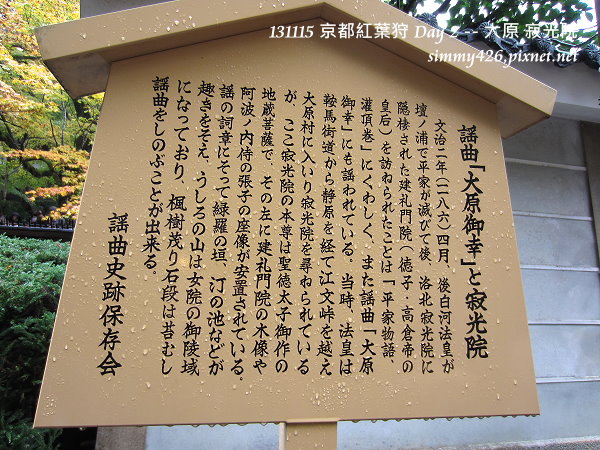 131115 京都紅葉狩 Day 2 - 大原 寂光院
simmy426.pixnet.net
謡曲「大原御幸」と寂光院
文治二年(一一八六)四月、後白河法皇が
壇ノ浦で平家が滅びて後、洛北寂光院に
隠棲された建礼門院(徳子・高倉帝の
皇后)を訪ねられたことは「平家物語、
灌頂巻」にくわしく、また謡曲「大原
御幸」にも謡われている。当時、法皇は
鞍馬街道から静原を経て江文峠を越え
大原村に入いり寂光院を尋ねられている
が、ここ寂光院の本尊は聖徳太子御作の
地蔵菩薩で、その左に建礼門院の木像や
阿波ノ内侍の張子の座像が安置されている。
謡の詞章にそって緑羅の垣、汀の池などが
趣きをそえ、うしろの山は女院の御陵域
になっており、楓樹茂り石段は苔むし
謡曲をしのぶことが出来る。
謡曲史跡保存会